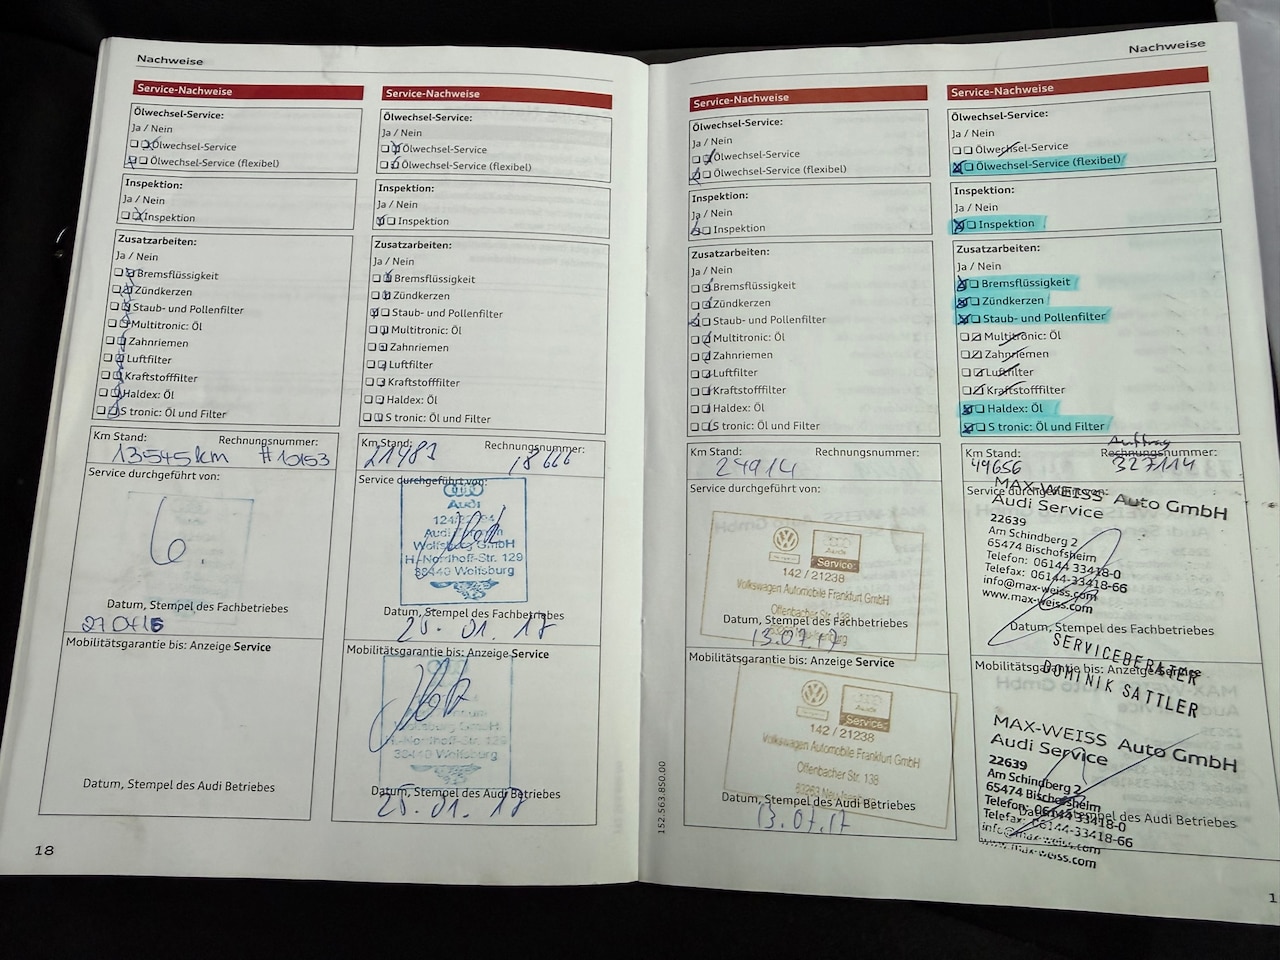 Nachweise
Service-Nachweise
Ölwechsel-Service:
Ja / Nein
Ölwechsel-Service
Ölwechsel-Service (flexibel)
Inspektion:
Ja / Nein
Inspektion
Zusatzarbeiten:
Ja / Nein
Bremsflüssigkeit
Zündkerzen
Staub- und Pollenfilter
Multitronic: Öl
Zahnriemen
Luftfilter
Kraftstofffilter
Haldex: Öl
S tronic: Öl und Filter
Km Stand: Rechnungsnummer:
13545km #10153
Service durchgeführt von:
Datum, Stempel des Fachbetriebes
Mobilitätsgarantie bis: Anzeige Service
Datum, Stempel des Audi Betriebes
18
Service-Nachweise
Ölwechsel-Service:
Ja / Nein
Ölwechsel-Service
Ölwechsel-Service (flexibel)
Inspektion:
Ja / Nein
Inspektion
Zusatzarbeiten:
Ja / Nein
Bremsflüssigkeit
Zündkerzen
Staub- und Pollenfilter
Multitronic: Öl
Zahnriemen
Luftfilter
Kraftstofffilter
Haldex: Öl
S tronic: Öl und Filter
Km Stand: Rechnungsnummer:
21983 18666
Service durchgeführt von:
Audi
Wolfsburg GmbH
H.-Nordhoff-Str. 129
38440 Wolfsburg
Datum, Stempel des Fachbetriebes
25.01.17
Mobilitätsgarantie bis: Anzeige Service
Wolfsburg GmbH
H.-Nordhoff-Str. 129
38440 Wolfsburg
Datum, Stempel des Audi Betriebes
25.01.17
Service-Nachweise
Ölwechsel-Service:
Ja / Nein
Ölwechsel-Service
Ölwechsel-Service (flexibel)
Inspektion:
Ja / Nein
Inspektion
Zusatzarbeiten:
Ja / Nein
Bremsflüssigkeit
Zündkerzen
Staub- und Pollenfilter
Multitronic: Öl
Zahnriemen
Luftfilter
Kraftstofffilter
Haldex: Öl
S tronic: Öl und Filter
Km Stand: Rechnungsnummer:
24914
Service durchgeführt von:
Audi
Service
142 / 21238
Volkswagen Automobile Frankfurt GmbH
Offenbacher Str. 138
Datum, Stempel des Fachbetriebes
13.07.17
Mobilitätsgarantie bis: Anzeige Service
Audi
Service
142 / 21238
Volkswagen Automobile Frankfurt GmbH
Offenbacher Str. 138
Datum, Stempel des Audi Betriebes
13.07.17
152.563.850.00
Nachweise
Service-Nachweise
Ölwechsel-Service:
Ja / Nein
Ölwechsel-Service
Ölwechsel-Service (flexibel)
Inspektion:
Ja / Nein
Inspektion
Zusatzarbeiten:
Ja / Nein
Bremsflüssigkeit
Zündkerzen
Staub- und Pollenfilter
Multitronic: Öl
Zahnriemen
Luftfilter
Kraftstofffilter
Haldex: Öl
S tronic: Öl und Filter
Auftrag
Km Stand: Rechnungsnummer:
49656 327114
Service durchgeführt von:
MAX-WEISS Auto GmbH
Audi Service
22639
Am Schindberg 2
65474 Bischofsheim
Telefon: 06144 33418-0
Telefax: 06144-33418-66
info@max-weiss.com
www.max-weiss.com
Datum, Stempel des Fachbetriebes
SERVICEBERATER
DOMINIK SATTLER
Mobilitätsgarantie bis: Anzeige Service
MAX-WEISS Auto GmbH
Audi Service
22639
Am Schindberg 2
65474 Bischofsheim
Telefon: 06144 33418-0
Telefax: 06144-33418-66
info@max-weiss.com
www.max-weiss.com
Datum, Stempel des Audi Betriebes
1